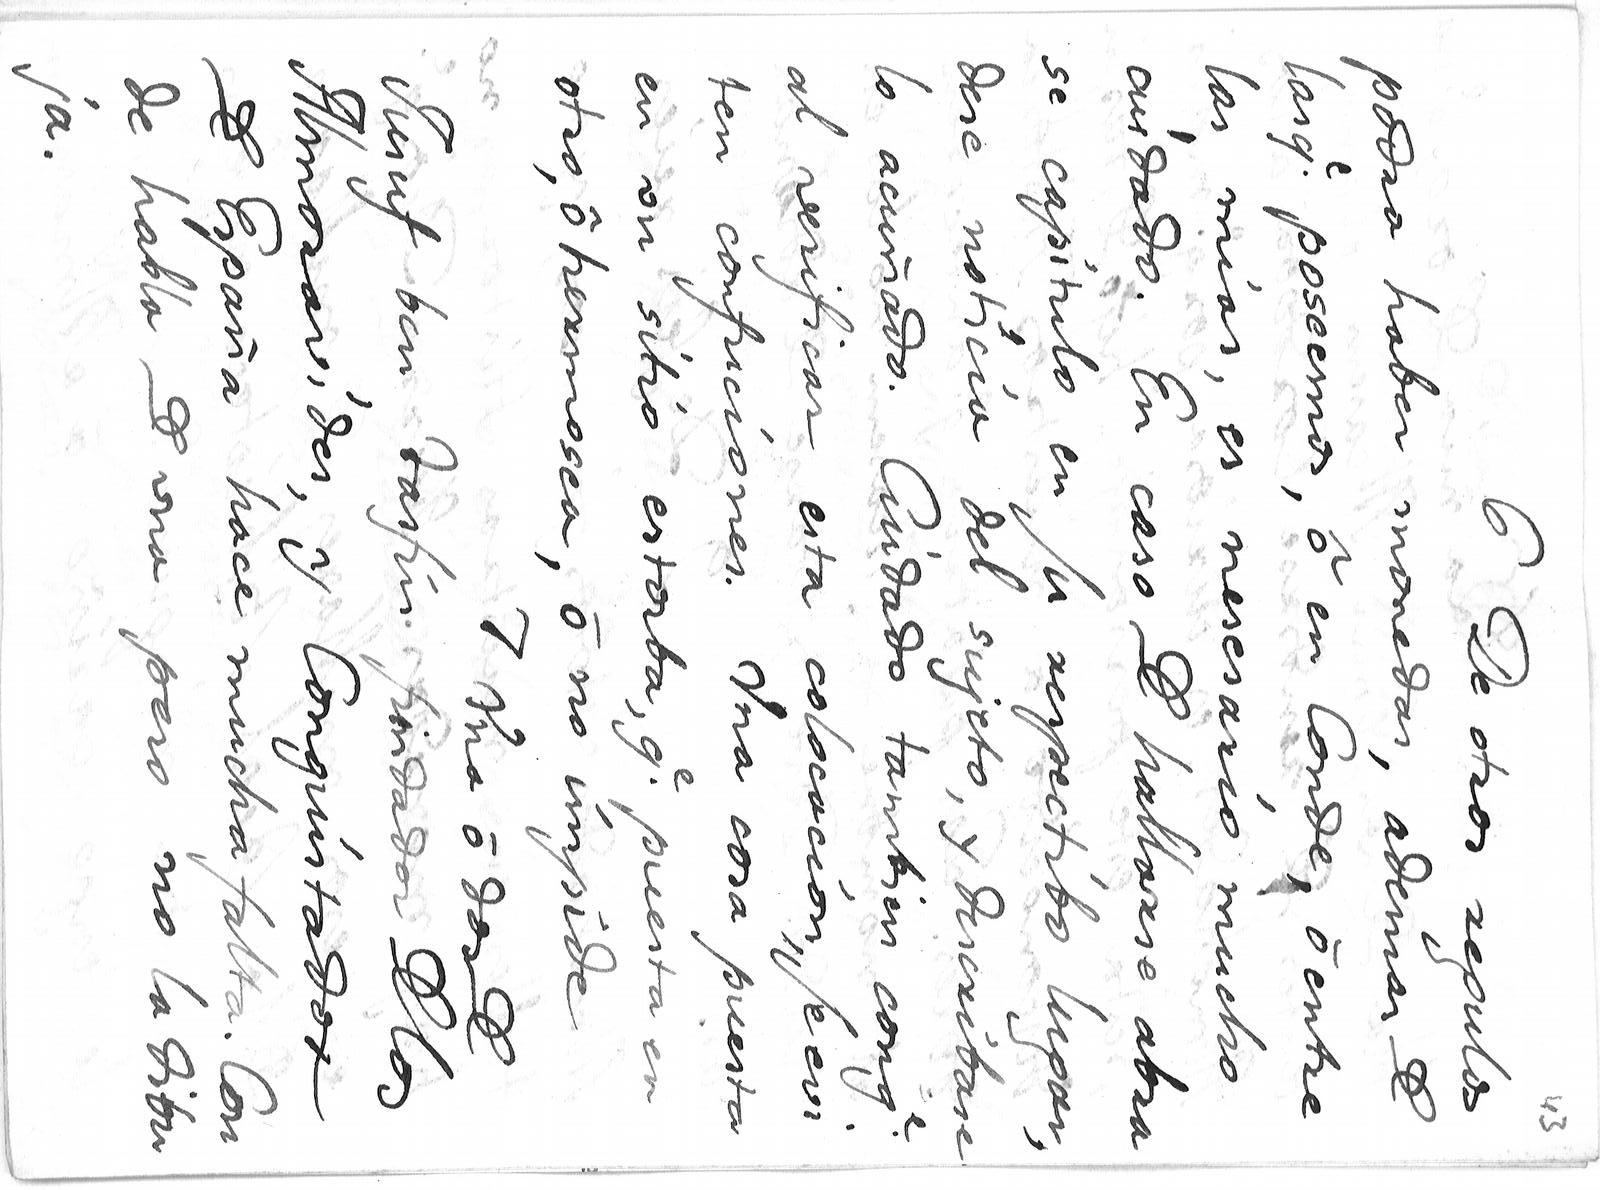 43
6 De otros regulos
podra haber monedas, ademas D
las q.e poseemos, ô en Conde, ô entre
las mias, es nescesario mucho
cuidado. En caso D hallarse abra
se capitulo en su respectibo lugar,
dese noticia del sugeto, y descríbase
lo acuñado. Cuidado tambien con q.e
al verificar esta colocacion, se evi
ten confuciones. Vna cosa puesta
en vn sitio estorba, q.e puesta en
otro, ô hermosea, ô no impide
7 Vna ô dos D
Jusuf ben Tasfin fundador D los
Almoravides, y Conquistador
D España hace mucha falta. Con
de habla D vna pero no la dibu
ja.